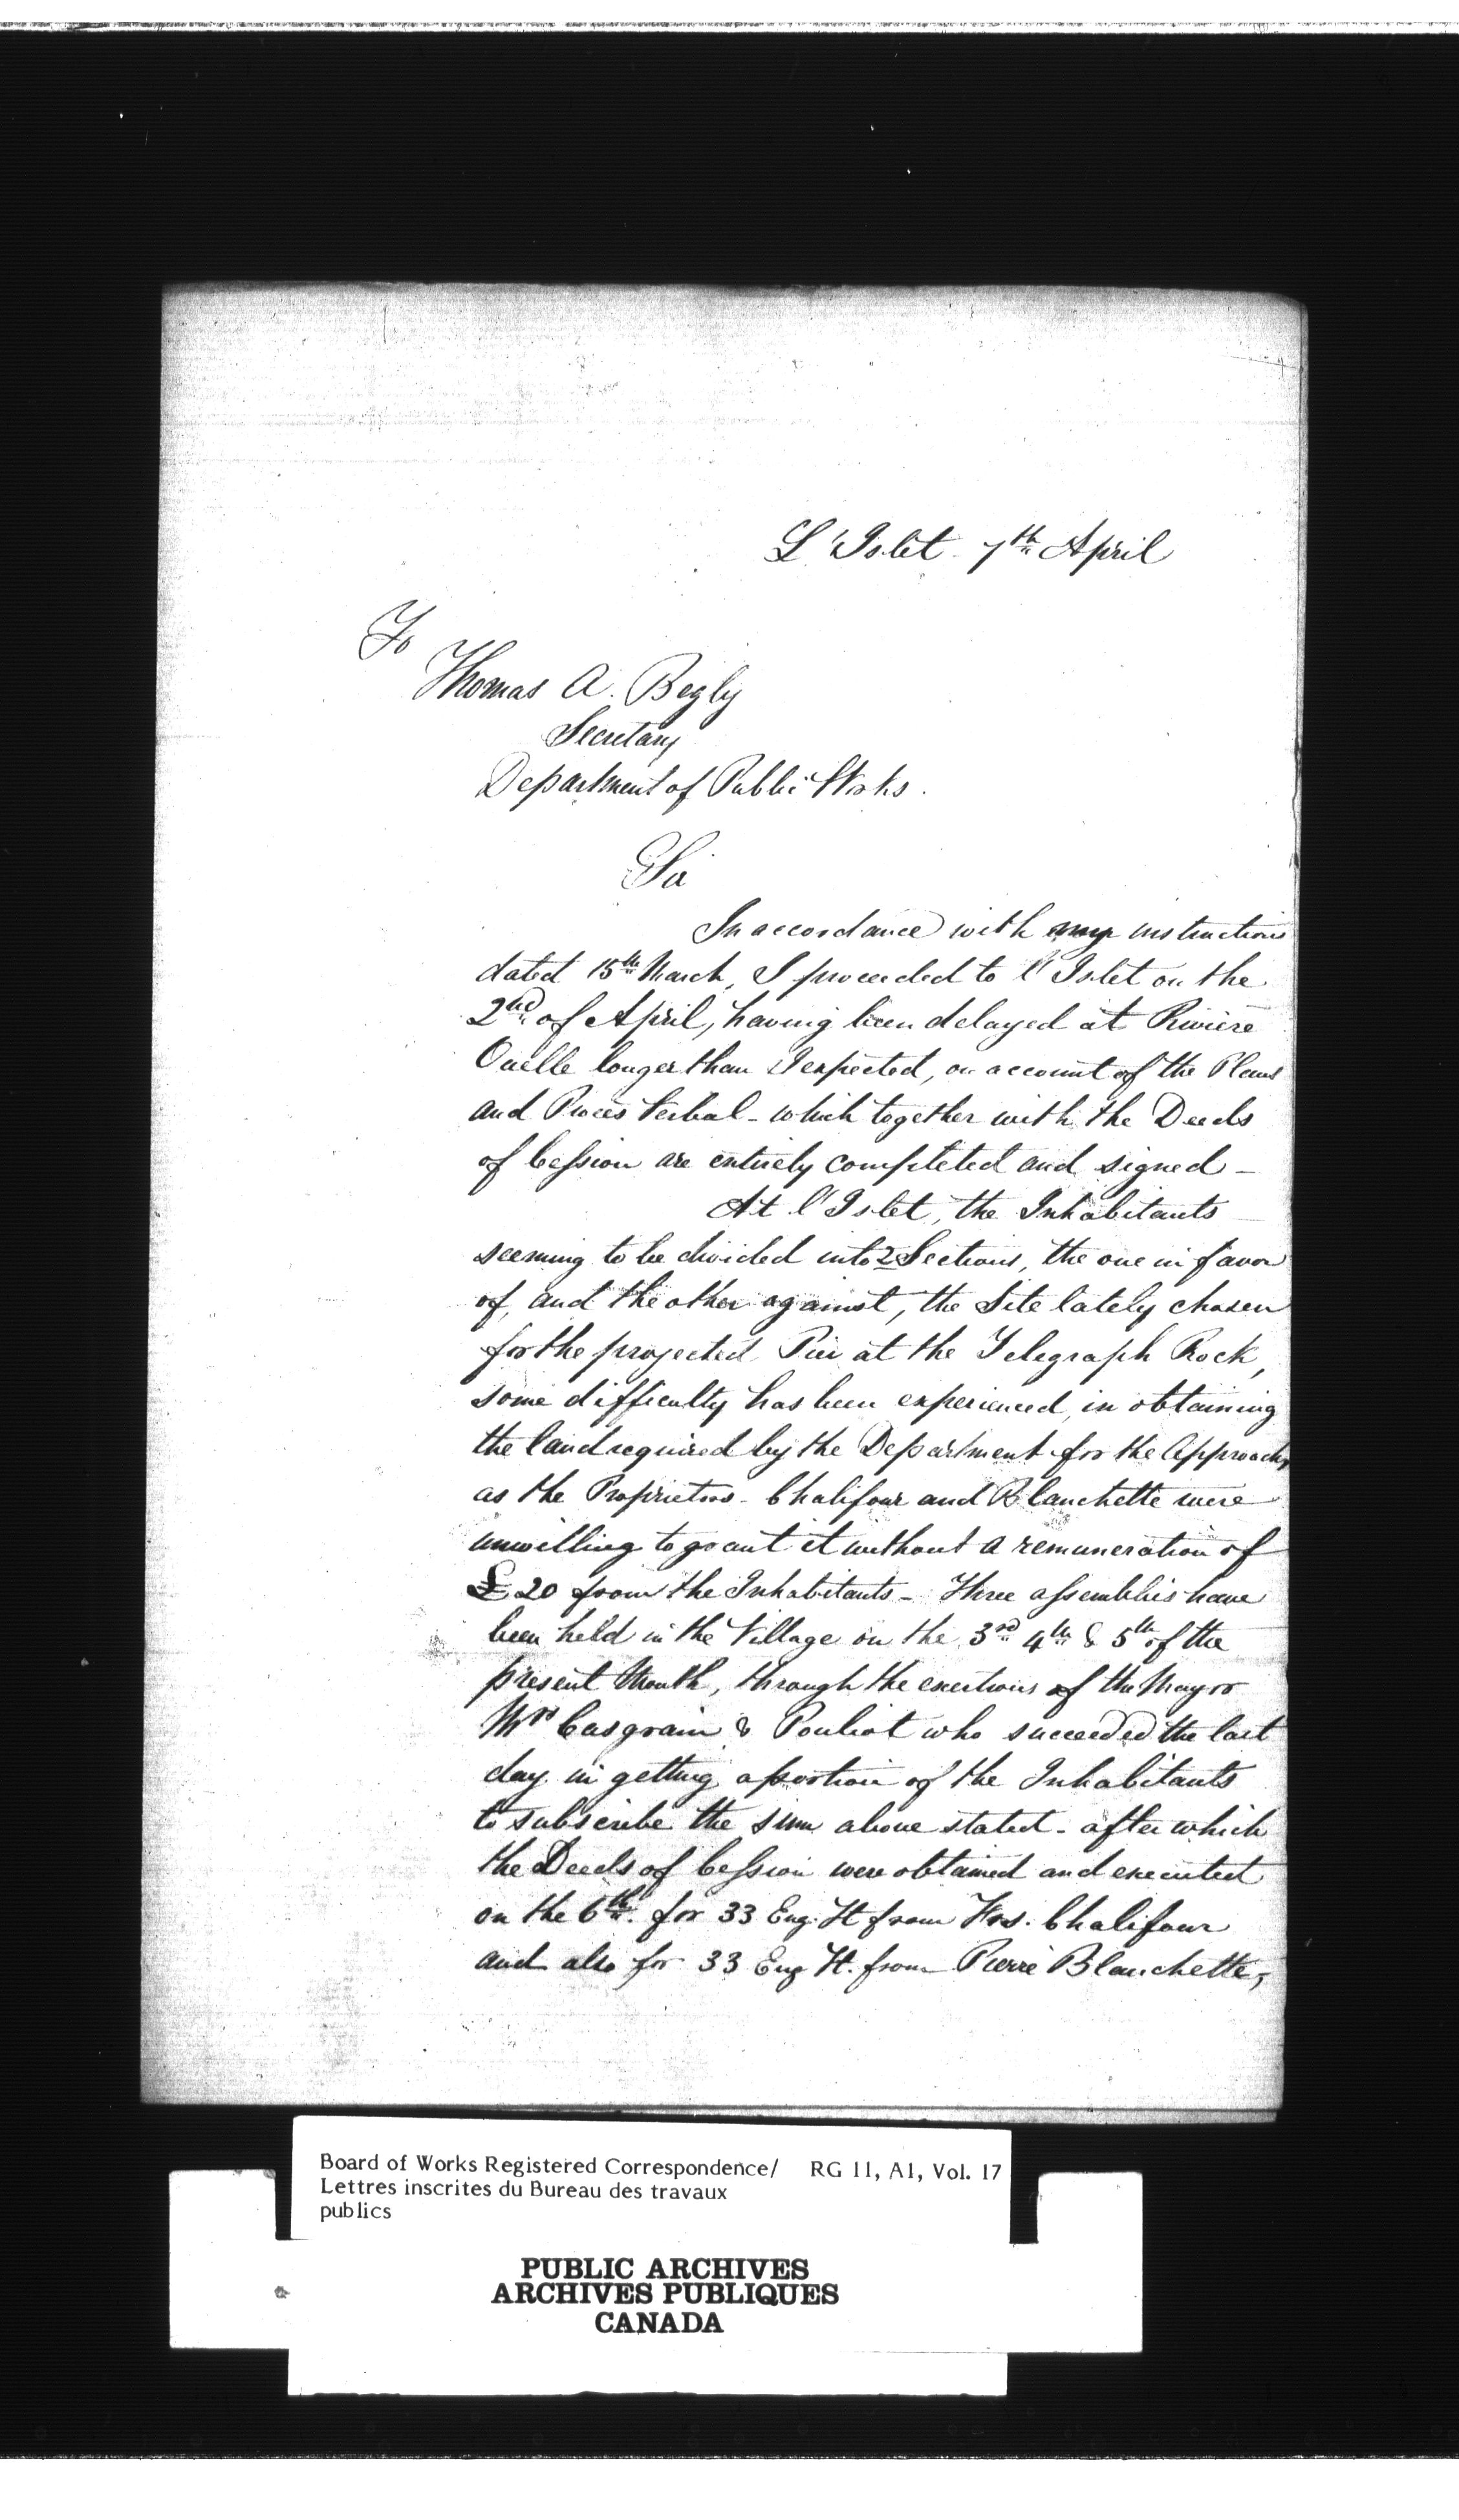 L'Islet 7th April
To
Thomas A. Begly
Secretary
Department of Public Works.
Sir
In accordance with my instructions
dated 15th March, I proceeded to l'Islet on the
2nd of April, having been delayed at Riviere
Ouelle longer than I expected, on account of the Plans
and Proces Verbal - which together with the Deeds
of Cession are entirely completed and signed -
At l'Islet, the Inhabitants
seeming to be divided into 2 Sections, the one in favor
of, and the other against, the Site lately chosen
for the projected Pier at the Telegraph Rock,
some difficulty has been experienced in obtaining
the land required by the Department for the Approach,
as the Proprietors - Chalifour and Blanchette were
unwilling to grant it without a remuneration of
£20 from the Inhabitants - Three assemblies have
been held in the Village on the 3rd 4th & 5th of the
present Month, through the exertions of the Mayor
Mrs Casgrain & Pouliot who succeeded the last
day in getting a portion of the Inhabitants
to subscribe the sum above stated - after which
the Deeds of Cession were obtained and executed
on the 6th. for 33 Eng. Ft from Frs. Chalifour
and also for 33 Eng Ft. from Pierre Blanchette,
Board of Works Registered Correspondence/ RG 11, A1, Vol. 17
Lettres inscrites du Bureau des travaux
publics
PUBLIC ARCHIVES
ARCHIVES PUBLIQUES
CANADA